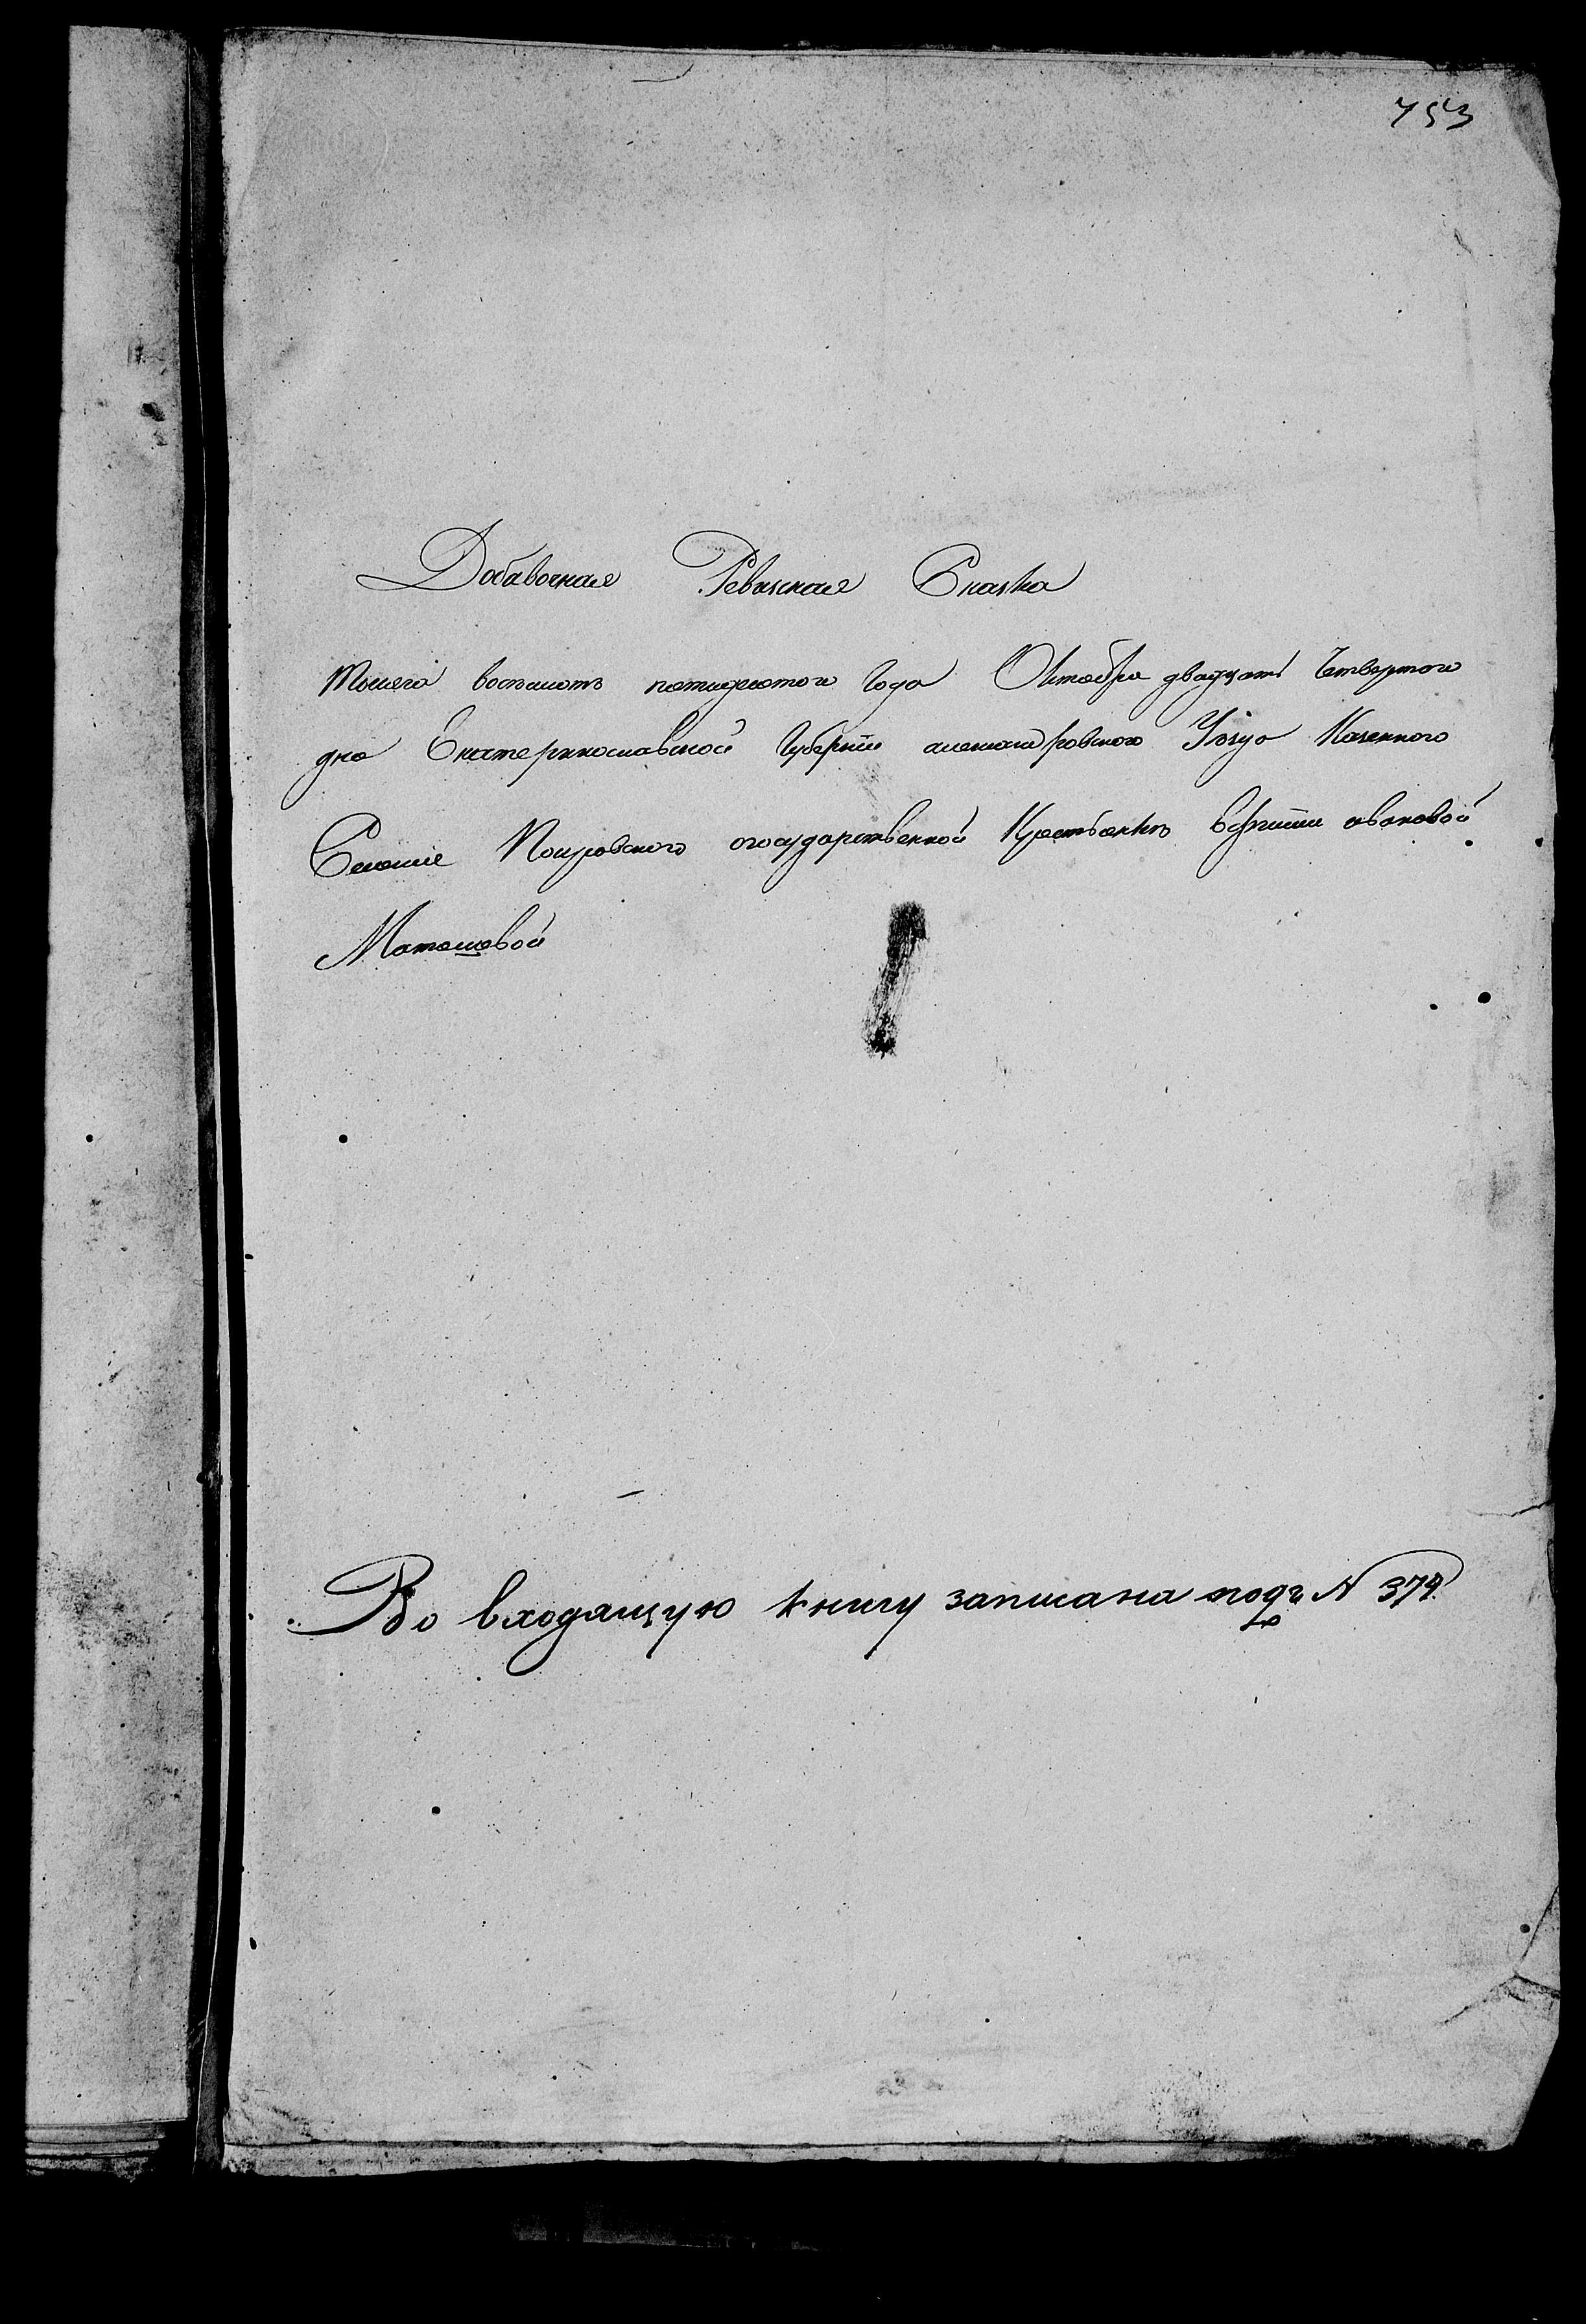 753
Добавочная Ревизская Сказка
тысяча восемьсотъ пятидесятого года Октября двадцать Четвертого
дня Екатеринославской Губернии александровского Уезда Казенного
Селения Покровского огосударственной Крестьянкѣ ивановой
Матошовой
Во входящую книгу записана подъ N 379.